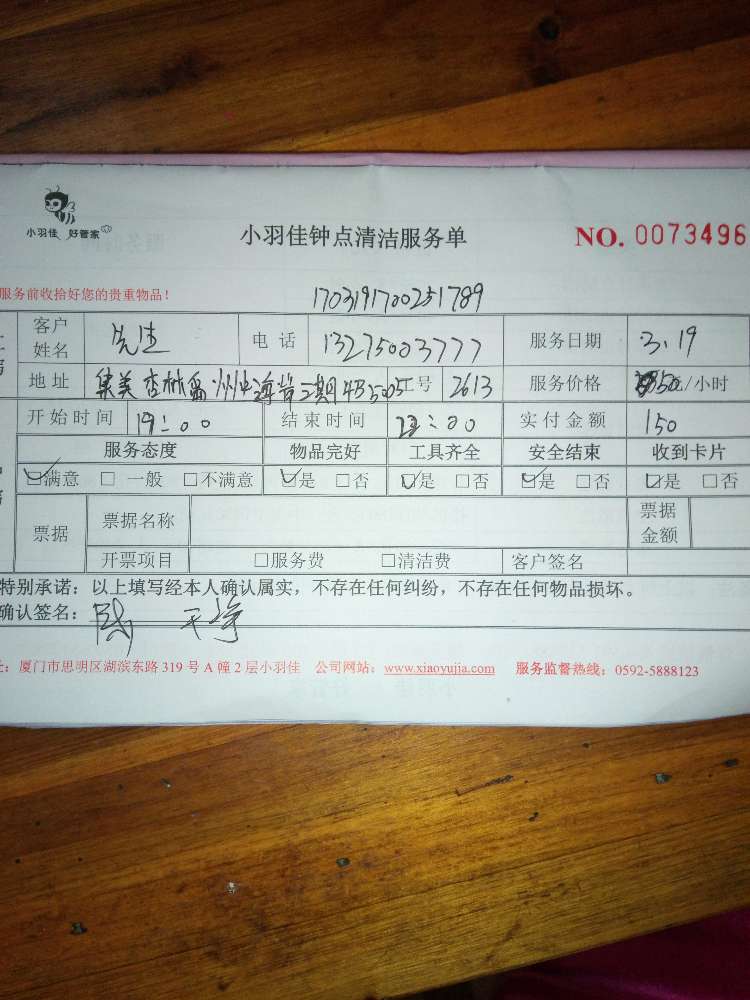 小羽佳 好管家
小羽佳钟点清洁服务单 NO. 0073496
服务前收拾好您的贵重物品！
1703191700251789
客户姓名 先生 电话 13275003777 服务日期 3.19
地址 集美杏林 工号 2613 服务价格 50/小时
开始时间 19:00 结束时间 22:00 实付金额 150
服务态度 物品完好 工具齐全 安全结束 收到卡片
☑满意 □一般 □不满意 ☑是 □否 ☑是 □否 ☑是 □否 ☑是 □否
票据 票据名称 票据金额
开票项目 □服务费 □清洁费 客户签名
特别承诺：以上填写经本人确认属实，不存在任何纠纷，不存在任何物品损坏。
确认签名： 干净
址：厦门市思明区湖滨东路 319 号 A 幢 2 层小羽佳 公司网站：www.xiaoyujia.com 服务监督热线：0592-5888123